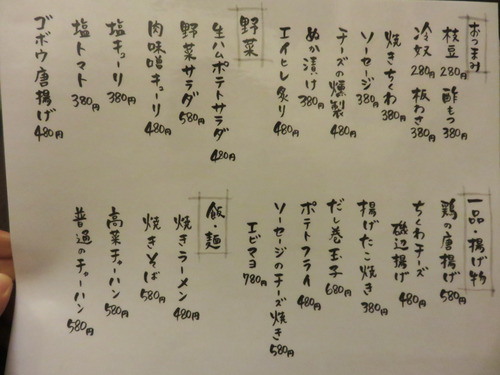 おつまみ
枝豆 280円 酢もつ 380円
冷奴 280円 板わさ 380円
焼きちくわ 380円
ソーセージ 380円
チーズの燻製 480円
ぬか漬け 380円
エイヒレ炙り 480円
野菜
生ハムポテトサラダ 480円
野菜サラダ 580円
肉味噌キューリ 480円
塩キューリ 380円
塩トマト 380円
ゴボウ唐揚げ 480円
一品・揚げ物
鶏の唐揚げ 580円
ちくわチーズ
磯辺揚げ 480円
揚げたこ焼き 380円
だし巻玉子 680円
ポテトフライ 480円
ソーセージのチーズ焼き 580円
エビマヨ 780円
飯・麺
焼きラーメン 480円
焼きそば 580円
高菜チャーハン 580円
普通のチャーハン 580円